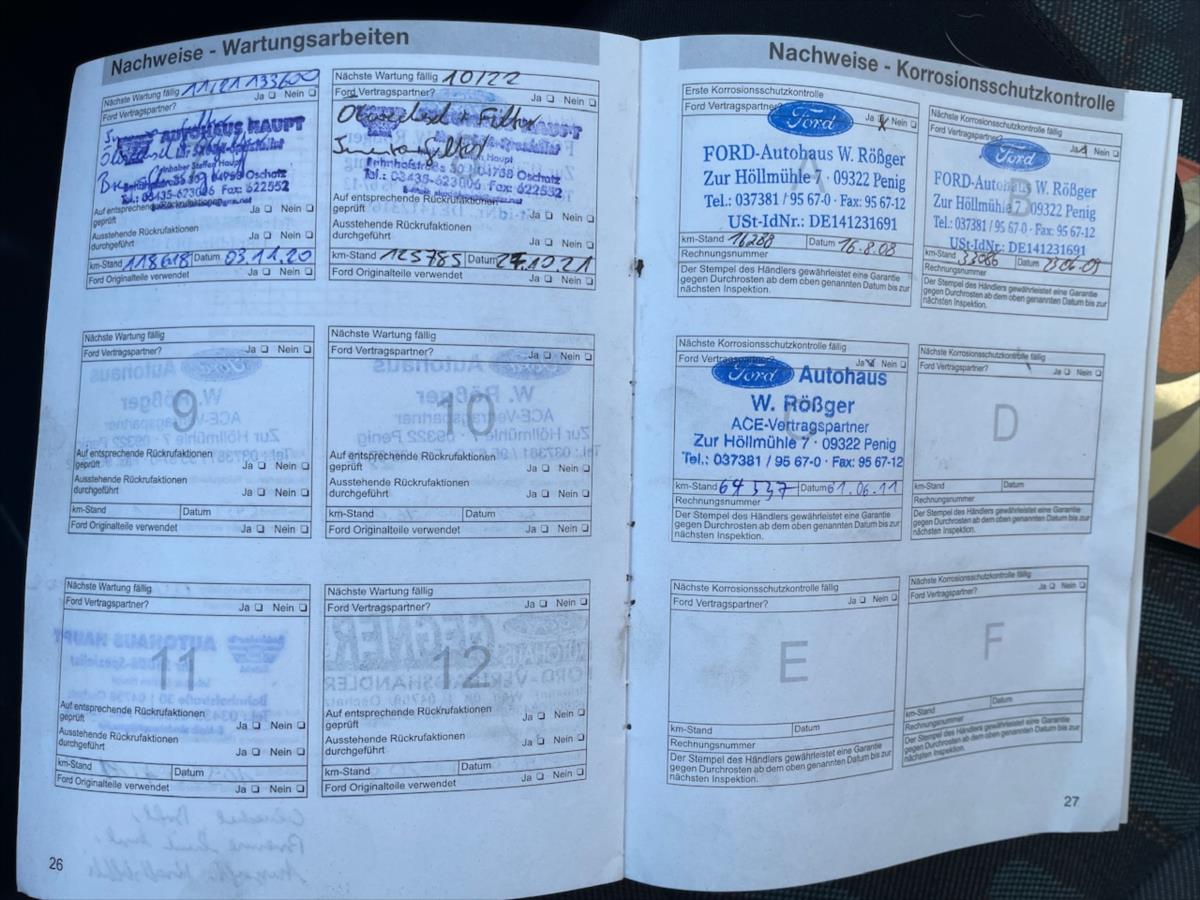 Nachweise - Wartungsarbeiten
Nächste Wartung fällig 11/21 133600
Ford Vertragspartner? Ja Nein
AUTOHAUS HAUPT
Inhaber Steffen Haupt
04758 Oschatz
Tel.: 03435-623006 Fax: 622552
Auf entsprechende Rückrufaktionen
geprüft Ja Nein
Ausstehende Rückrufaktionen
durchgeführt Ja Nein
km-Stand 118618 Datum 03.11.20
Ford Originalteile verwendet Ja Nein
Nächste Wartung fällig 10/22
Ford Vertragspartner? Ja Nein
Ölwechsel + Filter
Innenraumfilter
Haupt
Bahnhofstraße 30 | 04758 Oschatz
Tel.: 03435-623006 Fax: 622552
Auf entsprechende Rückrufaktionen
geprüft Ja Nein
Ausstehende Rückrufaktionen
durchgeführt Ja Nein
km-Stand 125785 Datum 27.10.21
Ford Originalteile verwendet Ja Nein
Nächste Wartung fällig
Ford Vertragspartner? Ja Nein
9
Auf entsprechende Rückrufaktionen
geprüft Ja Nein
Ausstehende Rückrufaktionen
durchgeführt Ja Nein
km-Stand Datum
Ford Originalteile verwendet Ja Nein
Nächste Wartung fällig
Ford Vertragspartner? Ja Nein
10
Auf entsprechende Rückrufaktionen
geprüft Ja Nein
Ausstehende Rückrufaktionen
durchgeführt Ja Nein
km-Stand Datum
Ford Originalteile verwendet Ja Nein
Nächste Wartung fällig
Ford Vertragspartner? Ja Nein
11
Auf entsprechende Rückrufaktionen
geprüft Ja Nein
Ausstehende Rückrufaktionen
durchgeführt Ja Nein
km-Stand Datum
Ford Originalteile verwendet Ja Nein
Nächste Wartung fällig
Ford Vertragspartner? Ja Nein
12
Auf entsprechende Rückrufaktionen
geprüft Ja Nein
Ausstehende Rückrufaktionen
durchgeführt Ja Nein
km-Stand Datum
Ford Originalteile verwendet Ja Nein
26
Nachweise - Korrosionsschutzkontrolle
Erste Korrosionsschutzkontrolle
Ford Vertragspartner? Ja Nein
Ford
A
FORD-Autohaus W. Rößger
Zur Höllmühle 7 · 09322 Penig
Tel.: 037381 / 95 67-0 · Fax: 95 67-12
USt-IdNr.: DE141231691
km-Stand 16288 Datum 16.8.08
Rechnungsnummer
Der Stempel des Händlers gewährleistet eine Garantie
gegen Durchrosten ab dem oben genannten Datum bis zur
nächsten Inspektion.
Nächste Korrosionsschutzkontrolle fällig
Ford Vertragspartner? Ja Nein
Ford
B
FORD-Autohaus W. Rößger
Zur Höllmühle 7 · 09322 Penig
Tel.: 037381 / 95 67-0 · Fax: 95 67-12
USt-IdNr.: DE141231691
km-Stand 33086 Datum
Rechnungsnummer
Der Stempel des Händlers gewährleistet eine Garantie
gegen Durchrosten ab dem oben genannten Datum bis zur
nächsten Inspektion.
Nächste Korrosionsschutzkontrolle fällig
Ford Vertragspartner? Ja Nein
Ford Autohaus
C
W. Rößger
ACE-Vertragspartner
Zur Höllmühle 7 · 09322 Penig
Tel.: 037381 / 95 67-0 · Fax: 95 67-12
km-Stand 64337 Datum 01.06.11
Rechnungsnummer
Der Stempel des Händlers gewährleistet eine Garantie
gegen Durchrosten ab dem oben genannten Datum bis zur
nächsten Inspektion.
Nächste Korrosionsschutzkontrolle fällig
Ford Vertragspartner? Ja Nein
D
km-Stand Datum
Rechnungsnummer
Der Stempel des Händlers gewährleistet eine Garantie
gegen Durchrosten ab dem oben genannten Datum bis zur
nächsten Inspektion.
Nächste Korrosionsschutzkontrolle fällig
Ford Vertragspartner? Ja Nein
E
km-Stand Datum
Rechnungsnummer
Der Stempel des Händlers gewährleistet eine Garantie
gegen Durchrosten ab dem oben genannten Datum bis zur
nächsten Inspektion.
Nächste Korrosionsschutzkontrolle fällig
Ford Vertragspartner? Ja Nein
F
km-Stand Datum
Rechnungsnummer
Der Stempel des Händlers gewährleistet eine Garantie
gegen Durchrosten ab dem oben genannten Datum bis zur
nächsten Inspektion.
27